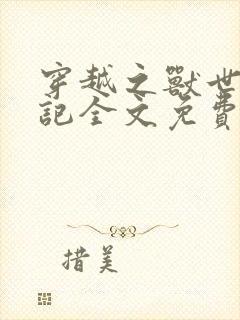 穿越之獸世
記全文免費
措美